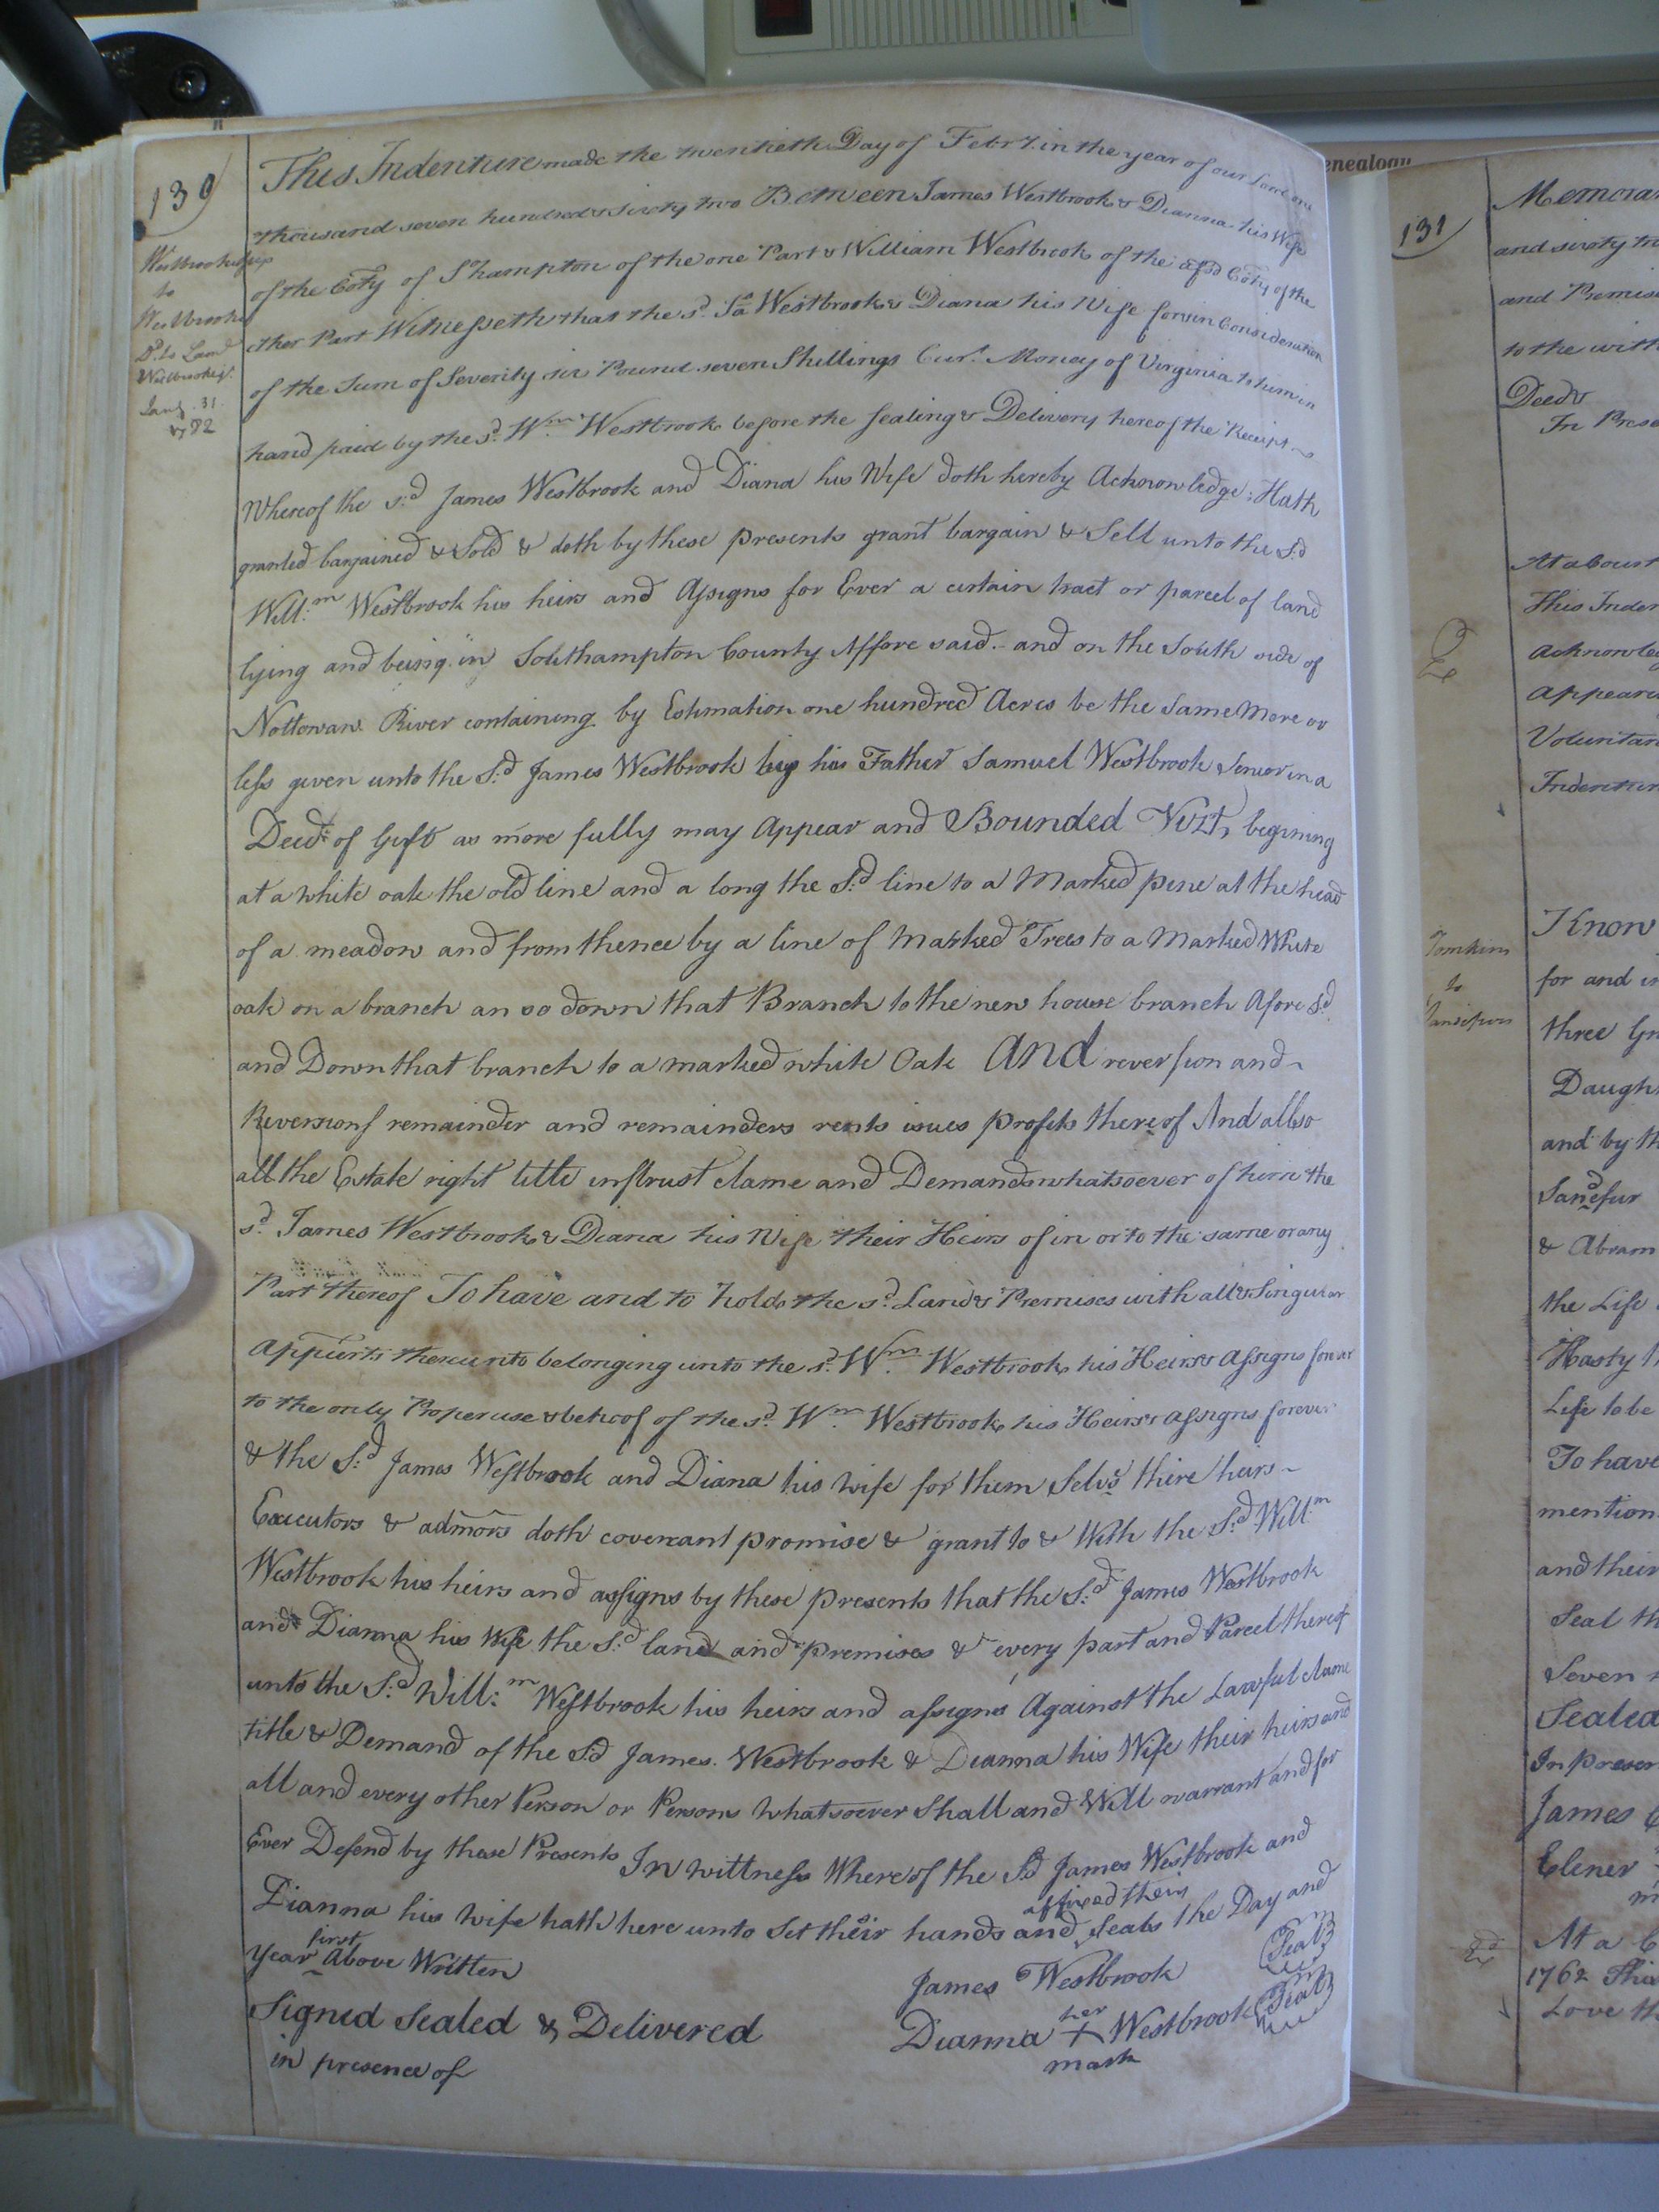 130
Westbrook &ux
to
Westbrook
Dd. to Land
Westbrook jr.
Jany. 31.
1782
This Indenture made the twentieth Day of Febry. in the year of our Lord one
thousand seven hundred & sixty two Between James Westbrook & Dianna his Wife
of the Coty of S'hampton of the one Part & William Westbrook of the afsd Coty of the
other Part Witnesseth that the sd. Ja Westbrook & Diana his Wife for & in Consideration
of the Sum of Seventy six Pound seven Shillings Curt. Money of Virginia to him in
hand paid by the sd. Wm. Westbrook before the sealing & Delivery hereof the Receipt
Whereof the s.d James Westbrook and Diana his Wife doth hereby Acknowledge: Hath
granted bargained & Sold & doth by these presents grant bargain & Sell unto the S.d
Will.m Westbrook his heirs and Assigns for Ever a certain tract or parcel of land
lying and being in Southampton County Affore said. and on the South side of
Nottoway River containing by Estimation one hundred Acres be the Same More or
less given unto the S.d James Westbrook by his Father Samuel Westbrook Senior in a
Deed of Gift as more fully may Appear and Bounded Vizt, begining
at a white oak the old line and a long the S.d line to a Marked pine at the head
of a meadow and from thence by a line of Marked Trees to a Marked White
oak on a branch an so down that Branch to the new house branch Afore S.d
and Down that branch to a marked white Oak And reversion and
Reversions remainder and remainders rents isues profits thereof And allso
all the Estate right title instrust clame and Demands whatsoever of him the
sd. James Westbrook & Diana his Wife their Heirs of in or to the same or any
Part thereof To have and to hold the sd. Land & Premises with all & Singular
Appurts thereunto belonging unto the sd. Wm. Westbrook his Heirs & Assigns forever
to the only Proper use & behoof of the sd. Wm. Westbrook his Heirs & Assigns forever
& the S.d James Westbrook and Diana his wife for them Selvs there heirs
Executors & admors doth covenant promise & grant to & With the S.d Will.m
Westbrook his heirs and assigns by these presents that the S.d James Westbrook
and Dianna his Wife the S.d land and premises & every part and Parcel thereof
unto the S.d Will.m Westbrook his heirs and assigns Against the Lawful clame
title & Demand of the Sd James Westbrook & Dianna his Wife their heirs and
all and every other Person or Persons Whatsoever Shall and Will warrant and for
Ever Defend by these Presents In wittness Where of the Sd James Westbrook and
Dianna his wife hath here unto Set their hands and affixed their Seals the Day and
Year first Above Written
James Westbrook (Seal)
Signed Sealed & Delivered
Dianna her + mark Westbrook (Seal)
in presence of
enealogy
131
Memoran
and sixty tw
and Premis
to the with
Deed
In Prese
At a Court
This Inden
Acknowled
Appeared
Voluntar
Indenture
Tomkins
to
Know
for and in
three Gr
Daugh
and by th
Sandefur
& Abram
the Life
Hasty
Life to be
To have
mention
and their
Seal th
Seven
Sealed
In presen
James
Elener
At a C
1762 This
Love th